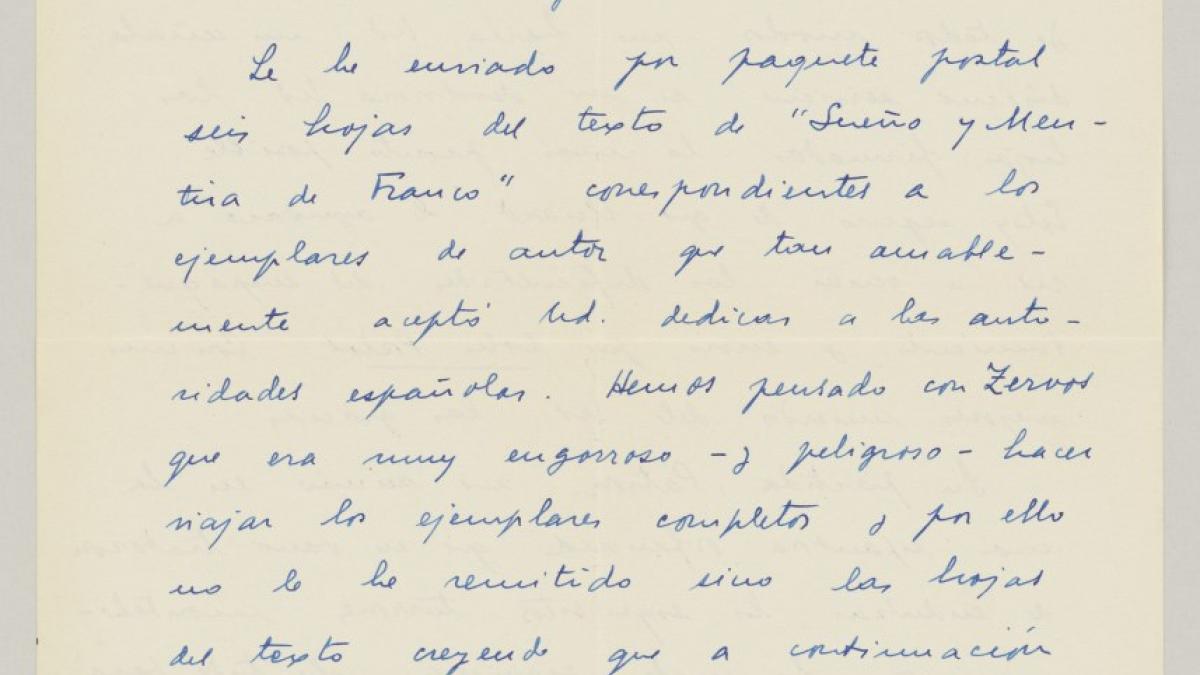 Le he enviado por paquete postal
seis hojas del texto de "Sueño y Men-
tira de Franco" correspondientes a los
ejemplares de autor que tan amable-
mente aceptó Ud. dedicar a las auto-
ridades españolas. Hemos pensado con Zervos
que era muy engorroso - y peligroso - hacer
viajar los ejemplares completos y por ello
no le he remitido sino las hojas
del texto creyendo que a continuación